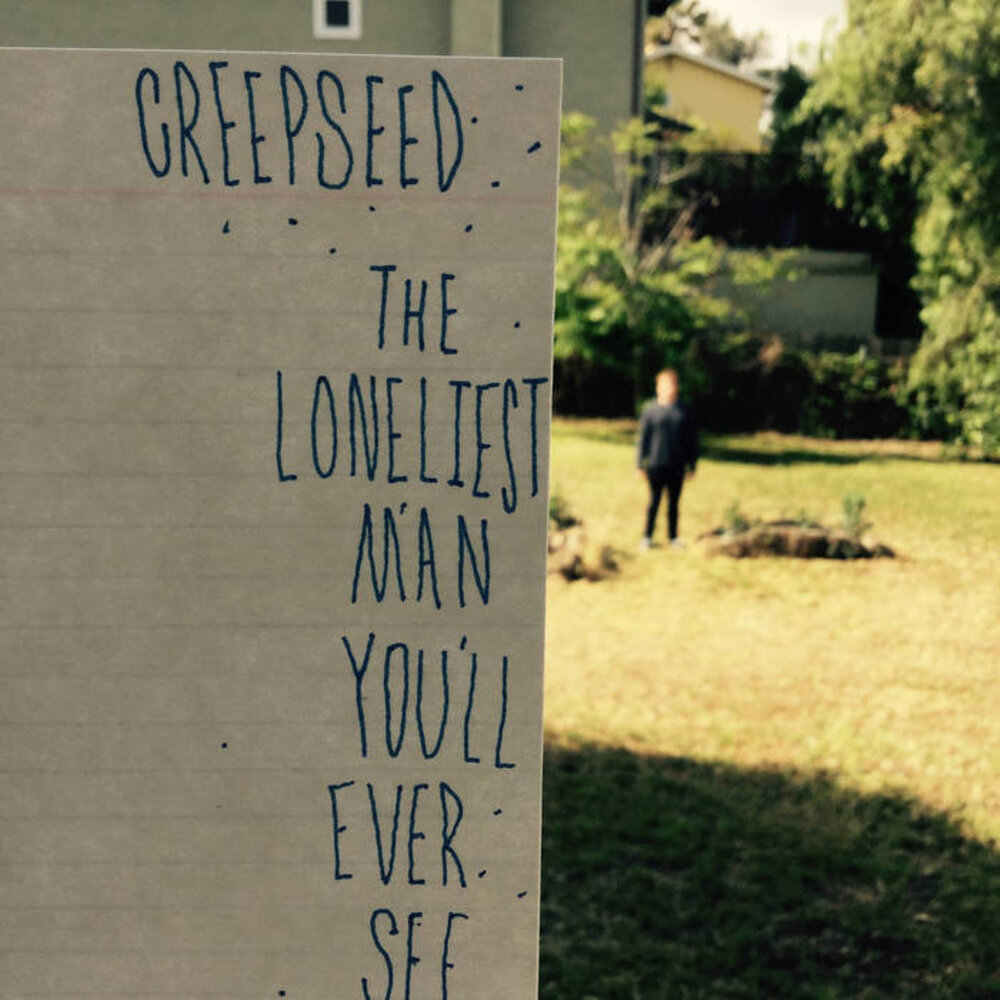 CREEPSEED
THE
LONELIEST
MAN
YOU'LL
EVER
SEE